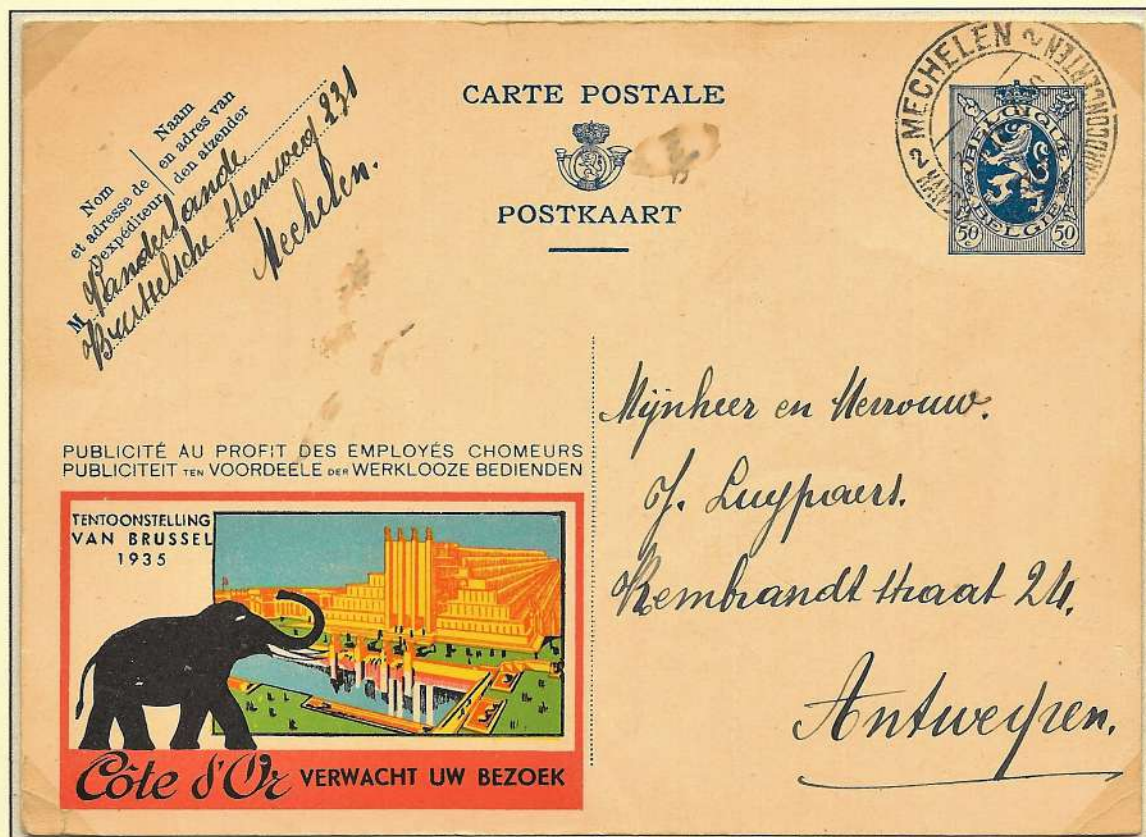 Nom
et adresse de
l'expéditeur
Naam
en adres van
den afzender
M Vanderlande
Brusselsche steenweg 231
Mechelen.
CARTE POSTALE
POSTKAART
2 MECHELEN 2
BELGIQUE
BELGIE
50 c
50 c
PUBLICITÉ AU PROFIT DES EMPLOYÉS CHOMEURS
PUBLICITEIT TEN VOORDEELE DER WERKLOOZE BEDIENDEN
TENTOONSTELLING
VAN BRUSSEL
1935
Côte d'Or VERWACHT UW BEZOEK
Mijnheer en Mevrouw.
J. Luypaers.
Rembrandt straat 24.
Antwerpen.